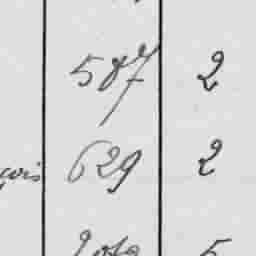 587 2
çois 629 2
5